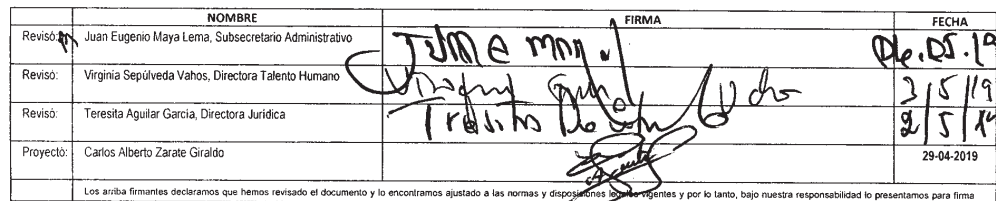 NOMBRE FIRMA FECHA
Revisó: Juan Eugenio Maya Lema, Subsecretario Administrativo
Revisó: Virginia Sepúlveda Vahos, Directora Talento Humano 3/5/19
Revisó: Teresita Aguilar García, Directora Jurídica 2/5/19
Proyectó: Carlos Alberto Zarate Giraldo 29-04-2019
Los arriba firmantes declaramos que hemos revisado el documento y lo encontramos ajustado a las normas y disposiciones legales vigentes y por lo tanto, bajo nuestra responsabilidad lo presentamos para firma